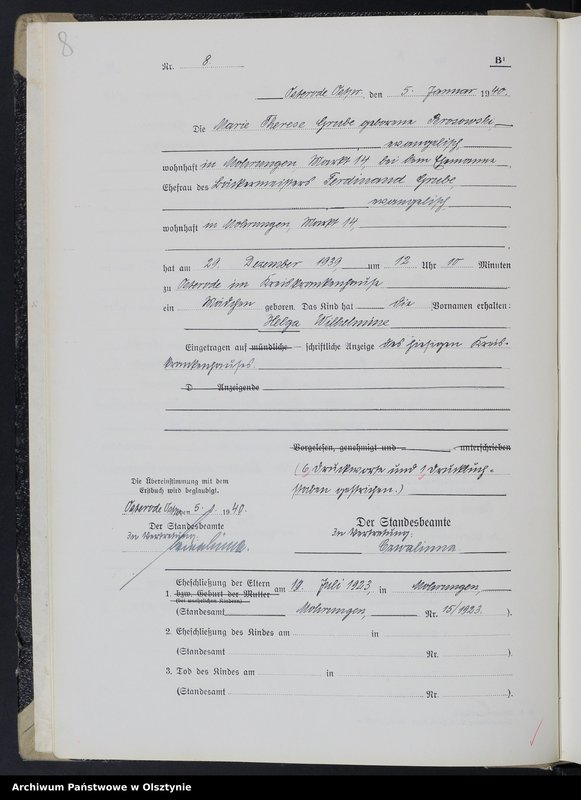 8
Nr. 8 B¹
Osterode Ostpr., den 5. Januar 1940.
Die Marie Therese Grube geborene Brosowski,
evangelisch,
wohnhaft in Mohrungen Markt 14 bei dem Ehemanne,
Ehefrau des Bäckermeisters Ferdinand Grube,
evangelisch,
wohnhaft in Mohrungen, Markt 14,
hat am 29. Dezember 1939, um 12 Uhr 10 Minuten
zu Osterode im Kreiskrankenhause
ein Mädchen geboren. Das Kind hat die Vornamen erhalten:
Helga Wilhelmine
Eingetragen auf mündliche – schriftliche Anzeige des hiesigen Kreis-
krankenhauses.
D Anzeigende
Vorgelesen, genehmigt und unterschrieben
(6 Druckworte und 1 Druckbuch-
staben gestrichen.)
Die Übereinstimmung mit dem
Erstbuch wird beglaubigt.
Osterode Ostpr., den 5. 1. 1940.
Der Standesbeamte
In Vertretung:
Der Standesbeamte
In Vertretung:
1. Eheschließung der Eltern
bzw. Geburt der Mutter
(bei unehelichen Kindern)
am 19. Juli 1923, in Mohrungen,
(Standesamt Mohrungen, Nr. 15/1923.).
2. Eheschließung des Kindes am in
(Standesamt Nr. ).
3. Tod des Kindes am in
(Standesamt Nr. ).
Archiwum Państwowe w Olsztynie